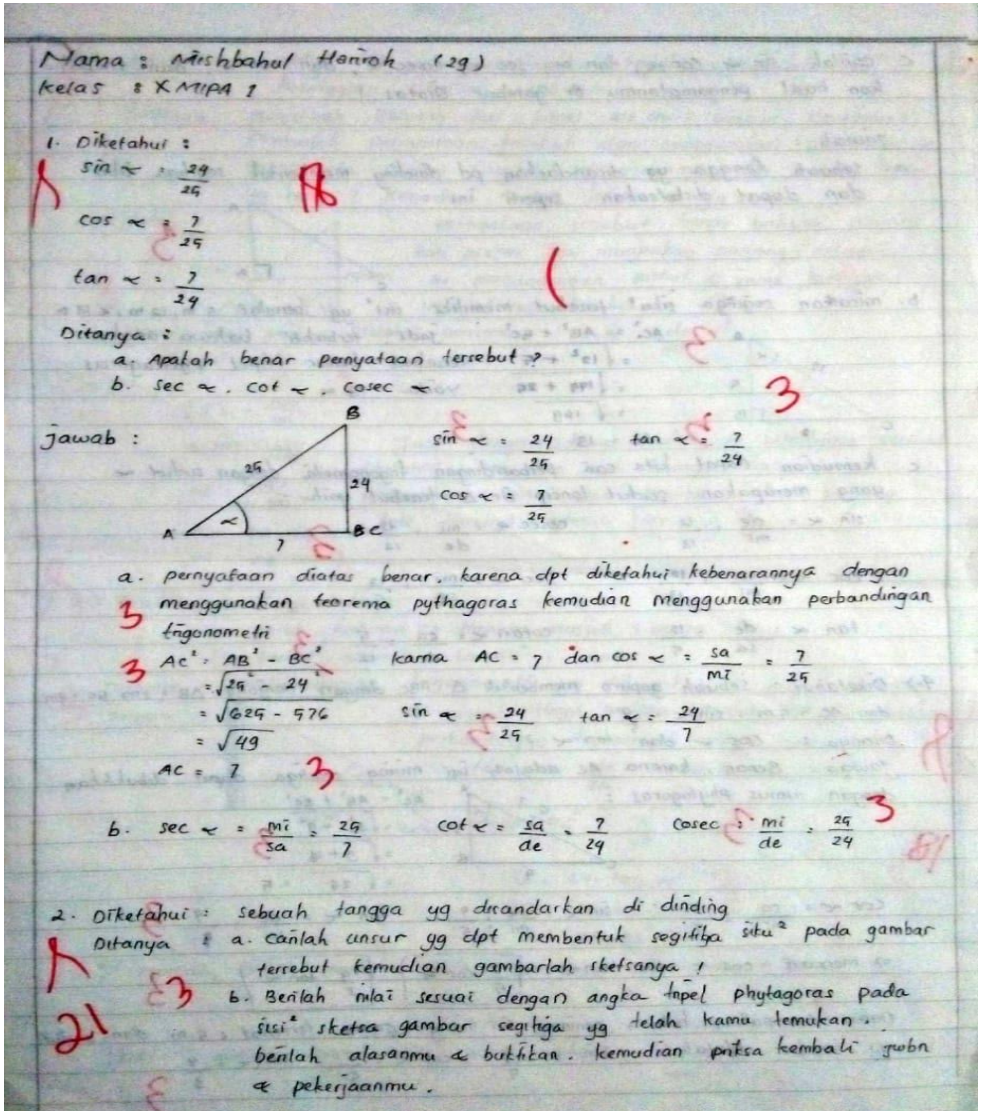 Nama : Mishbahul Haniroh (29)
Kelas : X MIPA 1
1. Diketahui :
sin α = 24/25
18
cos α = 7/25
tan α = 7/24
Ditanya :
a. Apakah benar pernyataan tersebut ?
b. sec α . cot α , cosec α
3
jawab :
B
25
24
α
A
7
B C
sin α = 24/25 tan α = 7/24
cos α = 7/25
a. pernyataan diatas benar. karena dpt diketahui kebenarannya dengan
3 menggunakan teorema pythagoras kemudian menggunakan perbandingan
trigonometri
3 AC² = AB² - BC² karna AC = 7 dan cos α = sa/mi = 7/25
= √25² - 24²
= √625 - 576 sin α = 24/25 tan α = 24/7
= √49
AC = 7 3
b. sec α = mi/sa = 25/7 cot α = sa/de = 7/24 cosec = mi/de = 25/24 3
2. Diketahui : sebuah tangga yg disandarkan di dinding
Ditanya : a. carilah unsur yg dpt membentuk segitiga siku² pada gambar
tersebut kemudian gambarlah sketsanya !
3 b. Berilah nilai sesuai dengan angka tripel phytagoras pada
21 sisi² sketsa gambar segitiga yg telah kamu temukan .
berilah alasanmu & buktikan . kemudian priksa kembali jwbn
& pekerjaanmu .